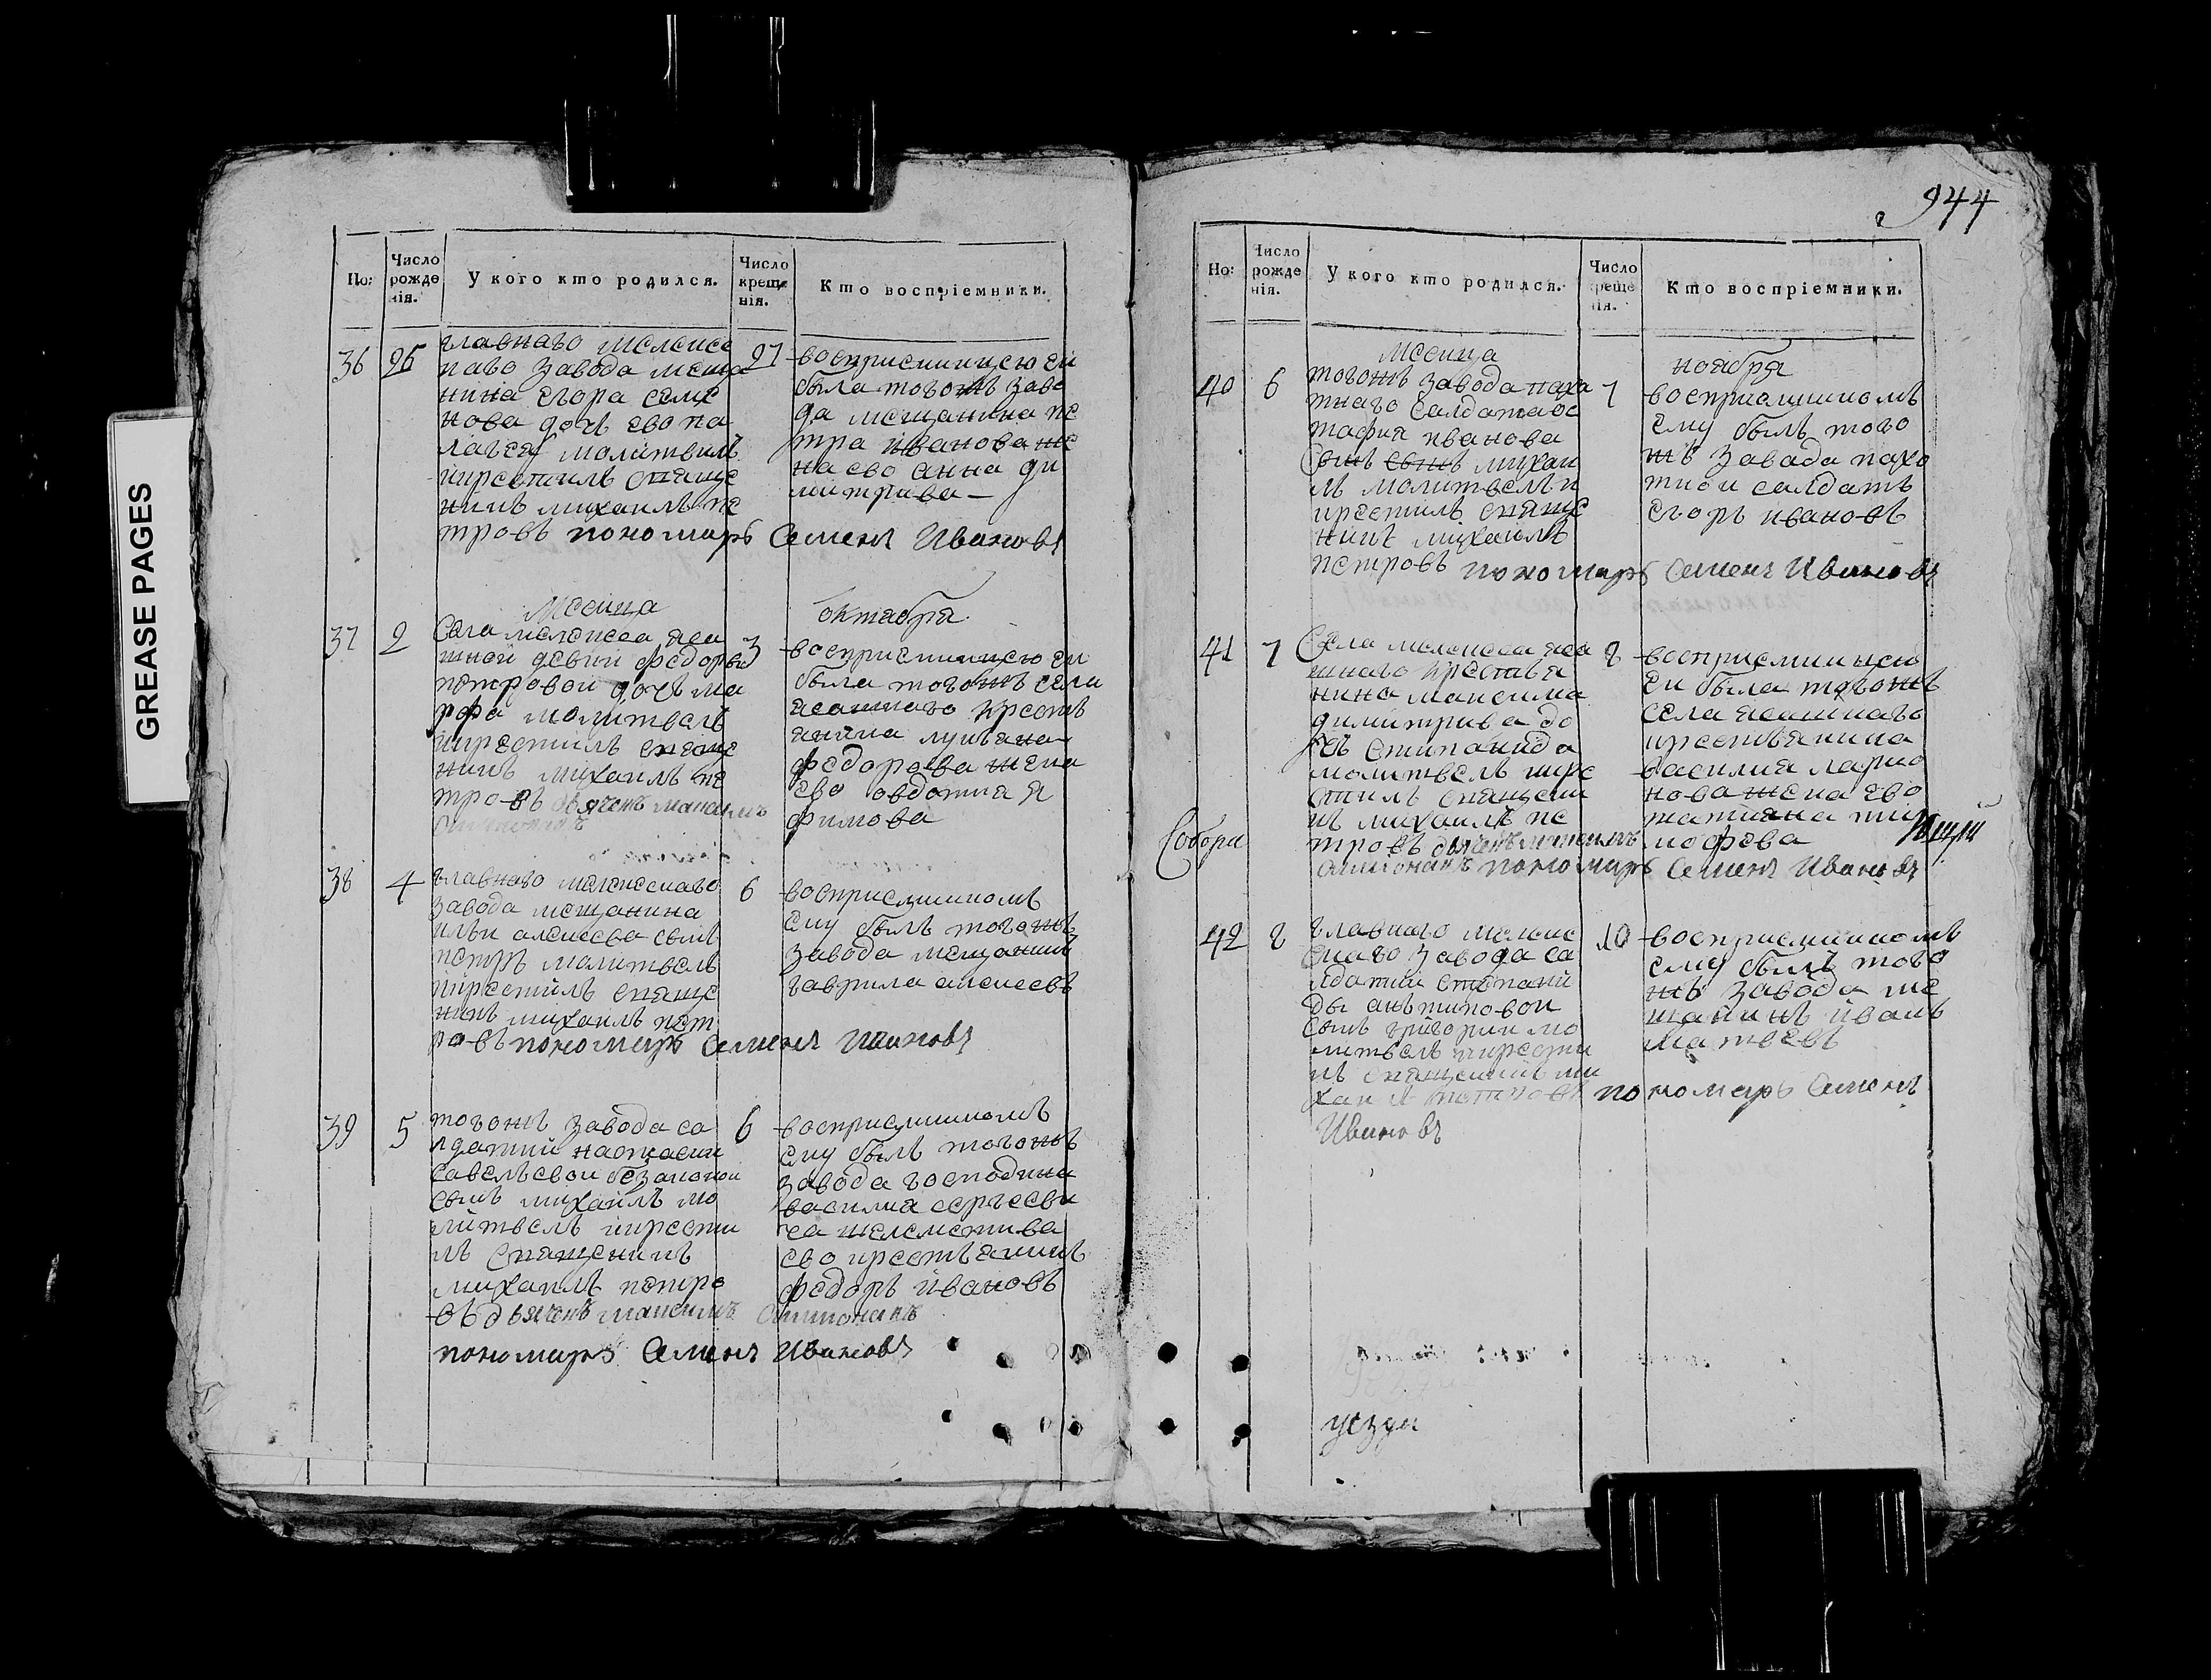 GREASE PAGES
944
Но:
Число рожденія.
У кого кто родился.
Число крещенія.
Кто воспріемники.
36
26
главнаго мелекес
каго завода меща
нина егора семе
нова дочь ево пе
лагея молитвилъ
икрестилъ свяще
никъ михаилъ пе
тровъ пономарь Семенъ Ивановъ
27
восприемницею еи
была тогожъ заво
да мещанина пе
тра иванова же
на ево анна ди
митрива
месица
октабря
37
2
Села мелекеса яса
шной девки федоры
петровой дочь ма
рфа молитвелъ
икрестилъ свяще
никъ михаилъ пе
тровъ дьячекъ максимъ
симионавъ
3
восприемницею еи
была тогожъ села
ясашнаго кресть
янина лукьяна
федорова жена
ево овдотия я
фимова
38
4
главнаго мелекескаго
завода мещанина
ильи алексева сынъ
петръ молитвелъ
икрестилъ свяще
никъ михаилъ пет
ровъ пономарь Семенъ Ивановъ
6
восприемникомъ
ему былъ тогожъ
завода мещанинъ
гаврила алексевъ
39
5
тогожъ завода са
лдатки настасии
савельевои безаконои
сынъ михаилъ мо
литвелъ икрести
лъ священикъ
михаилъ петро
въ дьячекъ максимъ симионавъ
пономарь Семенъ Ивановъ
6
восприемникомъ
ему былъ тогожъ
завода господина
василия сергееви
ча
ево крестьянинъ
федоръ ивановъ
Но:
Число рожденія.
У кого кто родился.
Число крещенія.
Кто воспріемники.
месица
ноября
40
6
тогожъ завода паха
тнаго салдата ос
тафия иванова
сынъ сынъ михаи
лъ молитвелъ и
крестилъ свяще
никъ михаилъ
петровъ пономарь Семенъ Ивановъ
7
восприемникомъ
ему былъ того
жъ завада пахо
тнои салдатъ
егоръ ивановъ
41
7
Села мелекеса яса
шнаго крестья
нина максима
димитрива до
чь стипанида
молитвелъ икре
стилъ священи
къ михаилъ пе
тровъ дьячекъ максимъ
симионавъ пономарь Семенъ Ивановъ
8
восприемницею
еи была тогожъ
села ясашнаго
крестьянина
василия ларио
нова жена ево
татияна тим
мофева
Собора
42
8
главнаго мелекес
скаго завода са
лдатки степани
ды антиповои
сынъ григории мо
литвелъ икрести
лъ священикъ ми
хаилъ петровъ пономарь Семенъ
Ивановъ
10
восприемникомъ
ему былъ того
жъ завода ме
щанинъ иванъ
матвеевъ
уезда